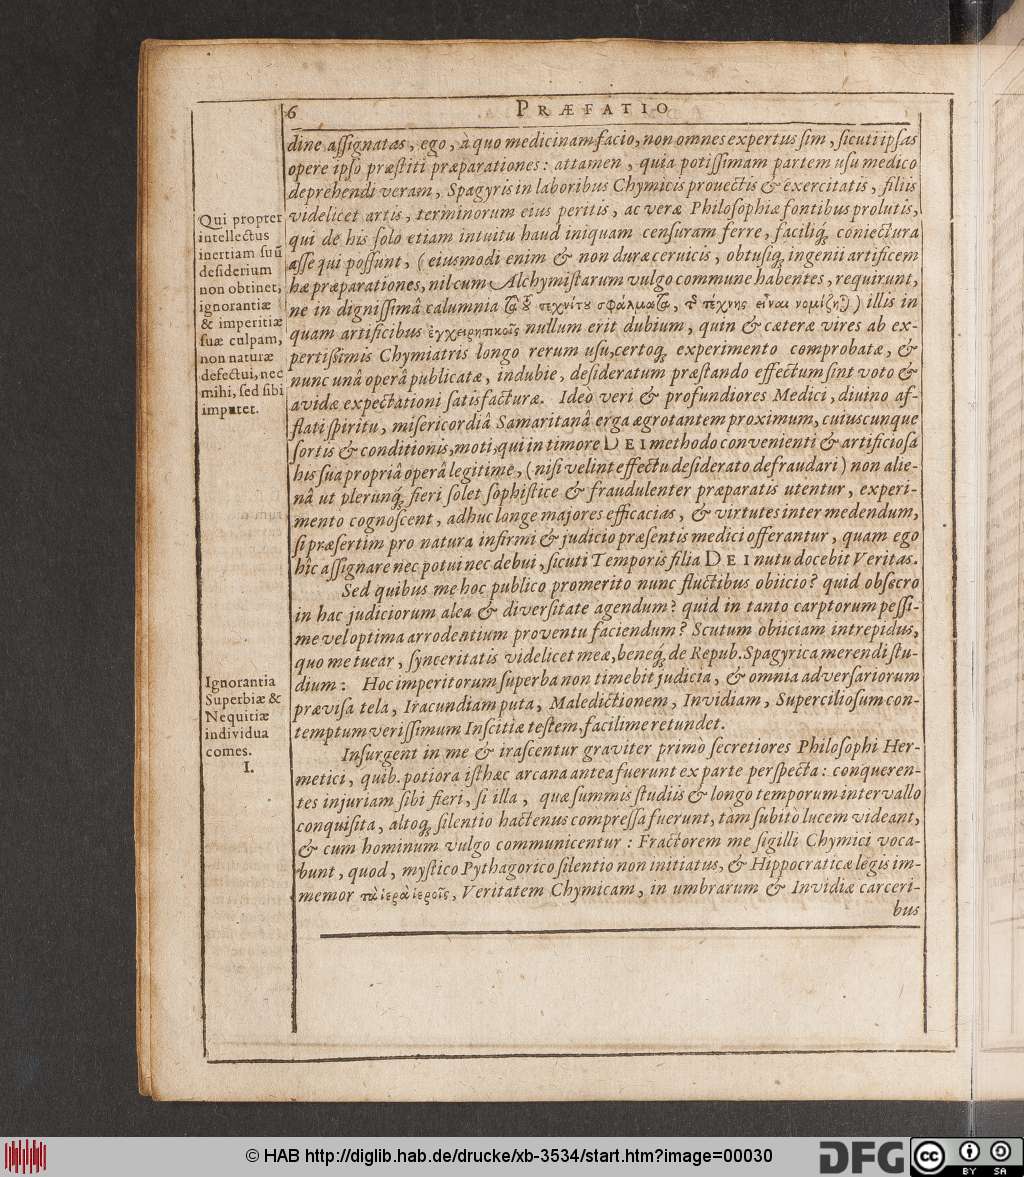 6 PRÆFATIO
dine assignatas, ego, à quo medicinam facio, non omnes expertus sim, sicuti ipsas
opere ipso præstiti præparationes: attamen, quia potissimam partem usu medico
deprehendi veram, Spagyris in laboribus Chymicis prouectis & exercitatis, filiis
videlicet artis, terminorum eius peritis, ac veræ Philosophiæ fontibus prolutis,
qui de his solo etiam intuitu haud iniquam censuram ferre, faciliq́; coniectura
assequi possunt, (eiusmodi enim & non duræ ceruicis, obtusiq; ingenii artificem
hæ præparationes, nil cum Alchymistarum vulgo commune habentes, requirunt,
ne in dignissimâ calumnia τὰ τοῦ τεχνίτου σφάλματα, τῆς τέχνης εἶναι νομίζῃ) illis in
quam artificibus ἐγχειρητικοῖς nullum erit dubium, quin & cæteræ vires ab ex-
pertissimis Chymiatris longo rerum usu, certoq; experimento comprobatæ, &
nunc unâ operâ publicatæ, indubie, desideratum præstando effectum sint voto &
avidæ expectationi satisfacturæ. Ideò veri & profundiores Medici, diuino af-
flati spiritu, misericordiâ Samaritanâ erga ægrotantem proximum, cuiuscunque
sortis & conditionis, moti, qui in timore DEI methodo convenienti & artificiosa
his sua propriâ operâ legitime, (nisi velint effectu desiderato defraudari) non alie-
nâ ut plerunq́; fieri solet sophistice & fraudulenter præparatis utentur, experi-
mento cognoscent, adhuc longe majores efficacias, & virtutes inter medendum,
si præsertim pro natura infirmi & judicio præsentis medici offerantur, quam ego
hîc assignare nec potui nec debui, sicuti Temporis filia DEI nutu docebit Veritas.
Sed quibus me hoc publico promerito nunc fluctibus obiicio? quid obsecro
in hac judiciorum alea & diversitate agendum? quid in tanto carptorum pessi-
me vel optima arrodentium proventu faciendum? Scutum obiiciam intrepidus,
quo me tuear, synceritatis videlicet meæ, beneq́; de Repub. Spagyrica merendi stu-
dium: Hoc imperitorum superba non timebit judicia, & omnia adversariorum
prævisa tela, Iracundiam puta, Maledictionem, Invidiam, Superciliosum con-
temptum verissimum Inscitiæ testem, facilime retundet.
Insurgent in me & irascentur graviter primò secretiores Philosophi Her-
metici, quib. potiora isthæc arcana antea fuerunt ex parte perspecta: conqueren-
tes injuriam sibi fieri, si illa, quæ summis studiis & longo temporum intervallo
conquisita, altoq; silentio hactenus compressa fuerunt, tam subitò lucem videant,
& cum hominum vulgo communicentur: Fractorem me sigilli Chymici voca-
bunt, quod, mystico Pythagorico silentio non initiatus, & Hippocraticæ legis im-
memor τὰ ἱερὰ ἱεροῖς, Veritatem Chymicam, in umbrarum & Invidiæ carceri-
bus
Qui propter
intellectus
inertiam suũ
desiderium
non obtinet,
ignorantiæ
& imperitiæ
suæ culpam,
non naturæ
defectui, nec
mihi, sed sibi
imputet.
Ignorantia
Superbiæ &
Nequitiæ
individua
comes.
I.
© HAB http://diglib.hab.de/drucke/xb-3534/start.htm?image=00030
DFG
cc BY SA